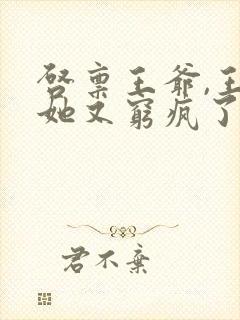 启禀王爷,王
她又穷疯了
君不弃